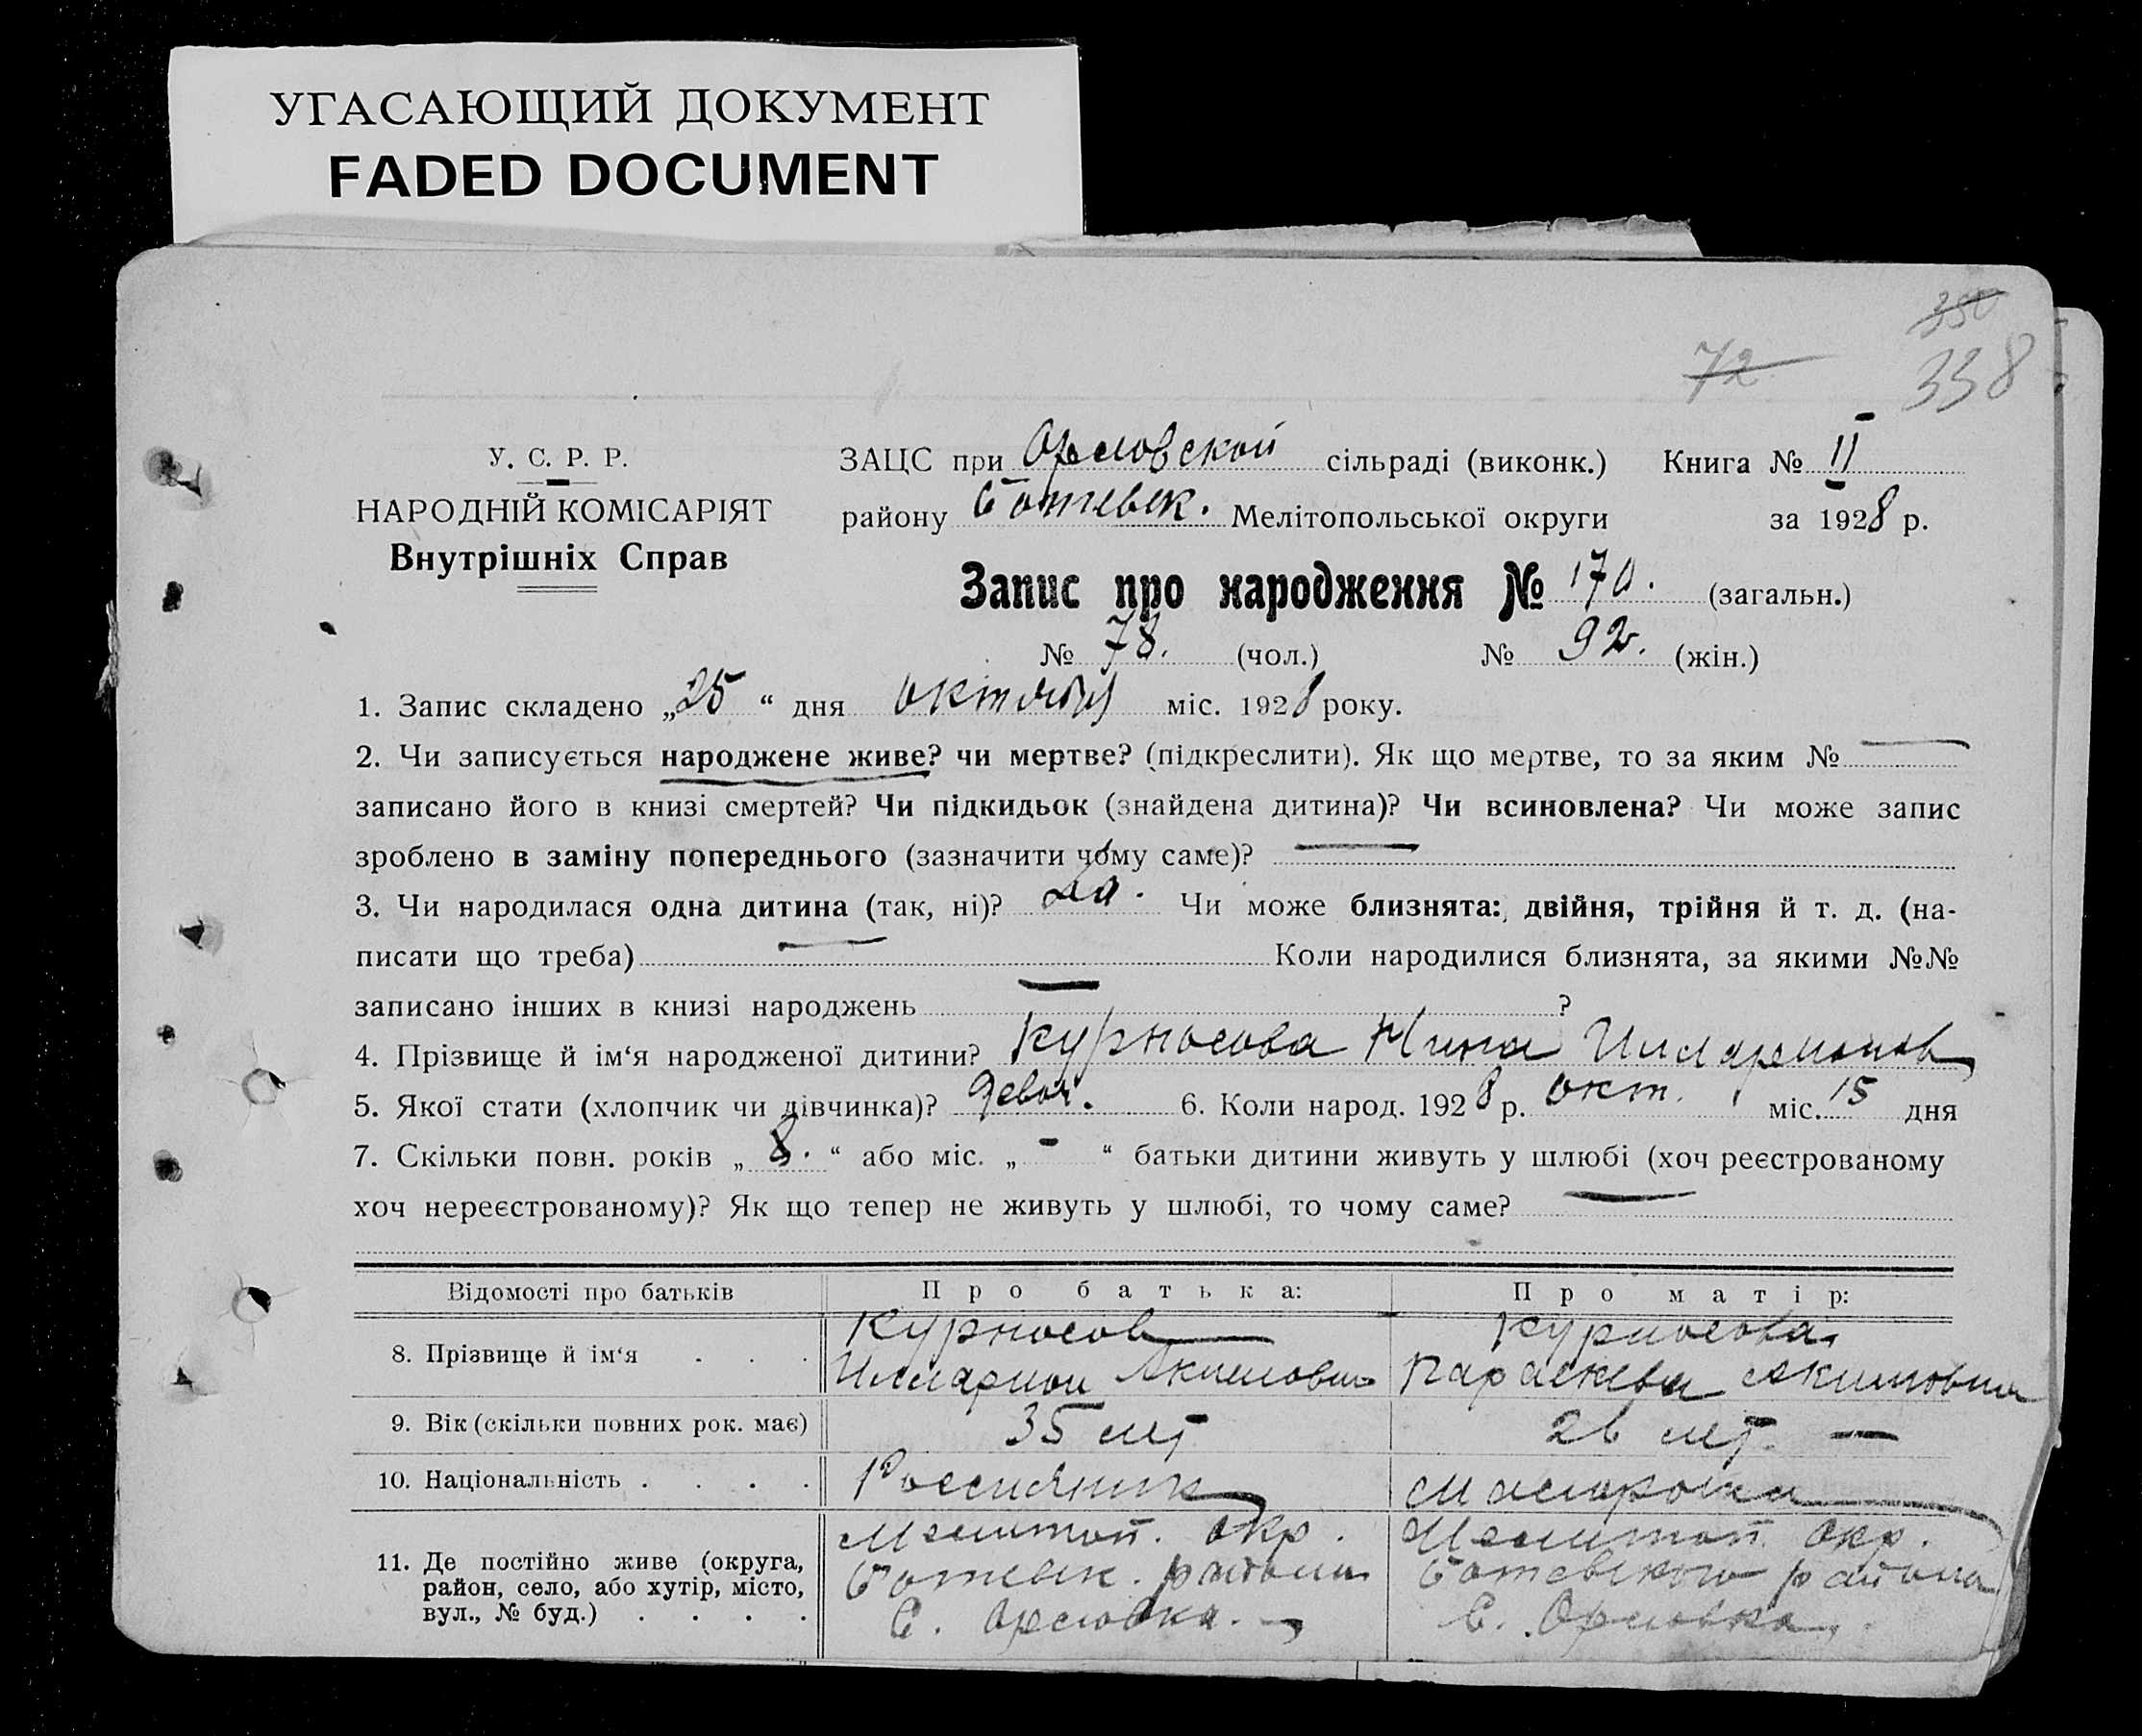 УГАСАЮЩИЙ ДОКУМЕНТ
FADED DOCUMENT
350
72 338
У. С. Р. Р.
НАРОДНІЙ КОМІСАРІЯТ
Внутрішніх Справ
ЗАЦС при Орловской сільраді (виконк.) Книга № II
району Ботевск. Мелітопольської округи за 1928 р.
Запис про народження № 170. (загальн.)
№ 78. (чол.) № 92. (жін.)
1. Запис складено „25“ дня октября міс. 1928 року.
2. Чи записується народжене живе? чи мертве? (підкреслити). Як що мертве, то за яким № —
записано його в книзі смертей? Чи підкидьок (знайдена дитина)? Чи всиновлена? Чи може запис
зроблено в заміну попереднього (зазначити чому саме)? —
3. Чи народилася одна дитина (так, ні)? Да. Чи може близнята: двійня, трійня й т. д. (на-
писати що треба) — Коли народилися близнята, за якими №№
записано інших в книзі народжень — ?
4. Прізвище й ім‘я народженої дитини? Курносова Нина Илларионов
5. Якої стати (хлопчик чи дівчинка)? девоч. 6. Коли народ. 1928 р. окт. міс. 15 дня
7. Скільки повн. років „8.“ або міс. „-“ батьки дитини живуть у шлюбі (хоч реєстрованому
хоч нереєстрованому)? Як що тепер не живуть у шлюбі, то чому саме? —
Відомості про батьків Про батька: Про матір:
8. Прізвище й ім‘я . . . Курносов Курносова
Илларион Акимович Параскева Акимовна
9. Вік (скільки повних рок. має) 35 лет 26 лет. —
10. Національність . . . . Россиянин Малоросиа
11. Де постійно живе (округа, Мелитоп. Окр. Мелитоп. Окр.
район, село, або хутір, місто, Ботевск. района Ботевского района
вул., № буд.) . . . . С. Орловка. С. Орловка